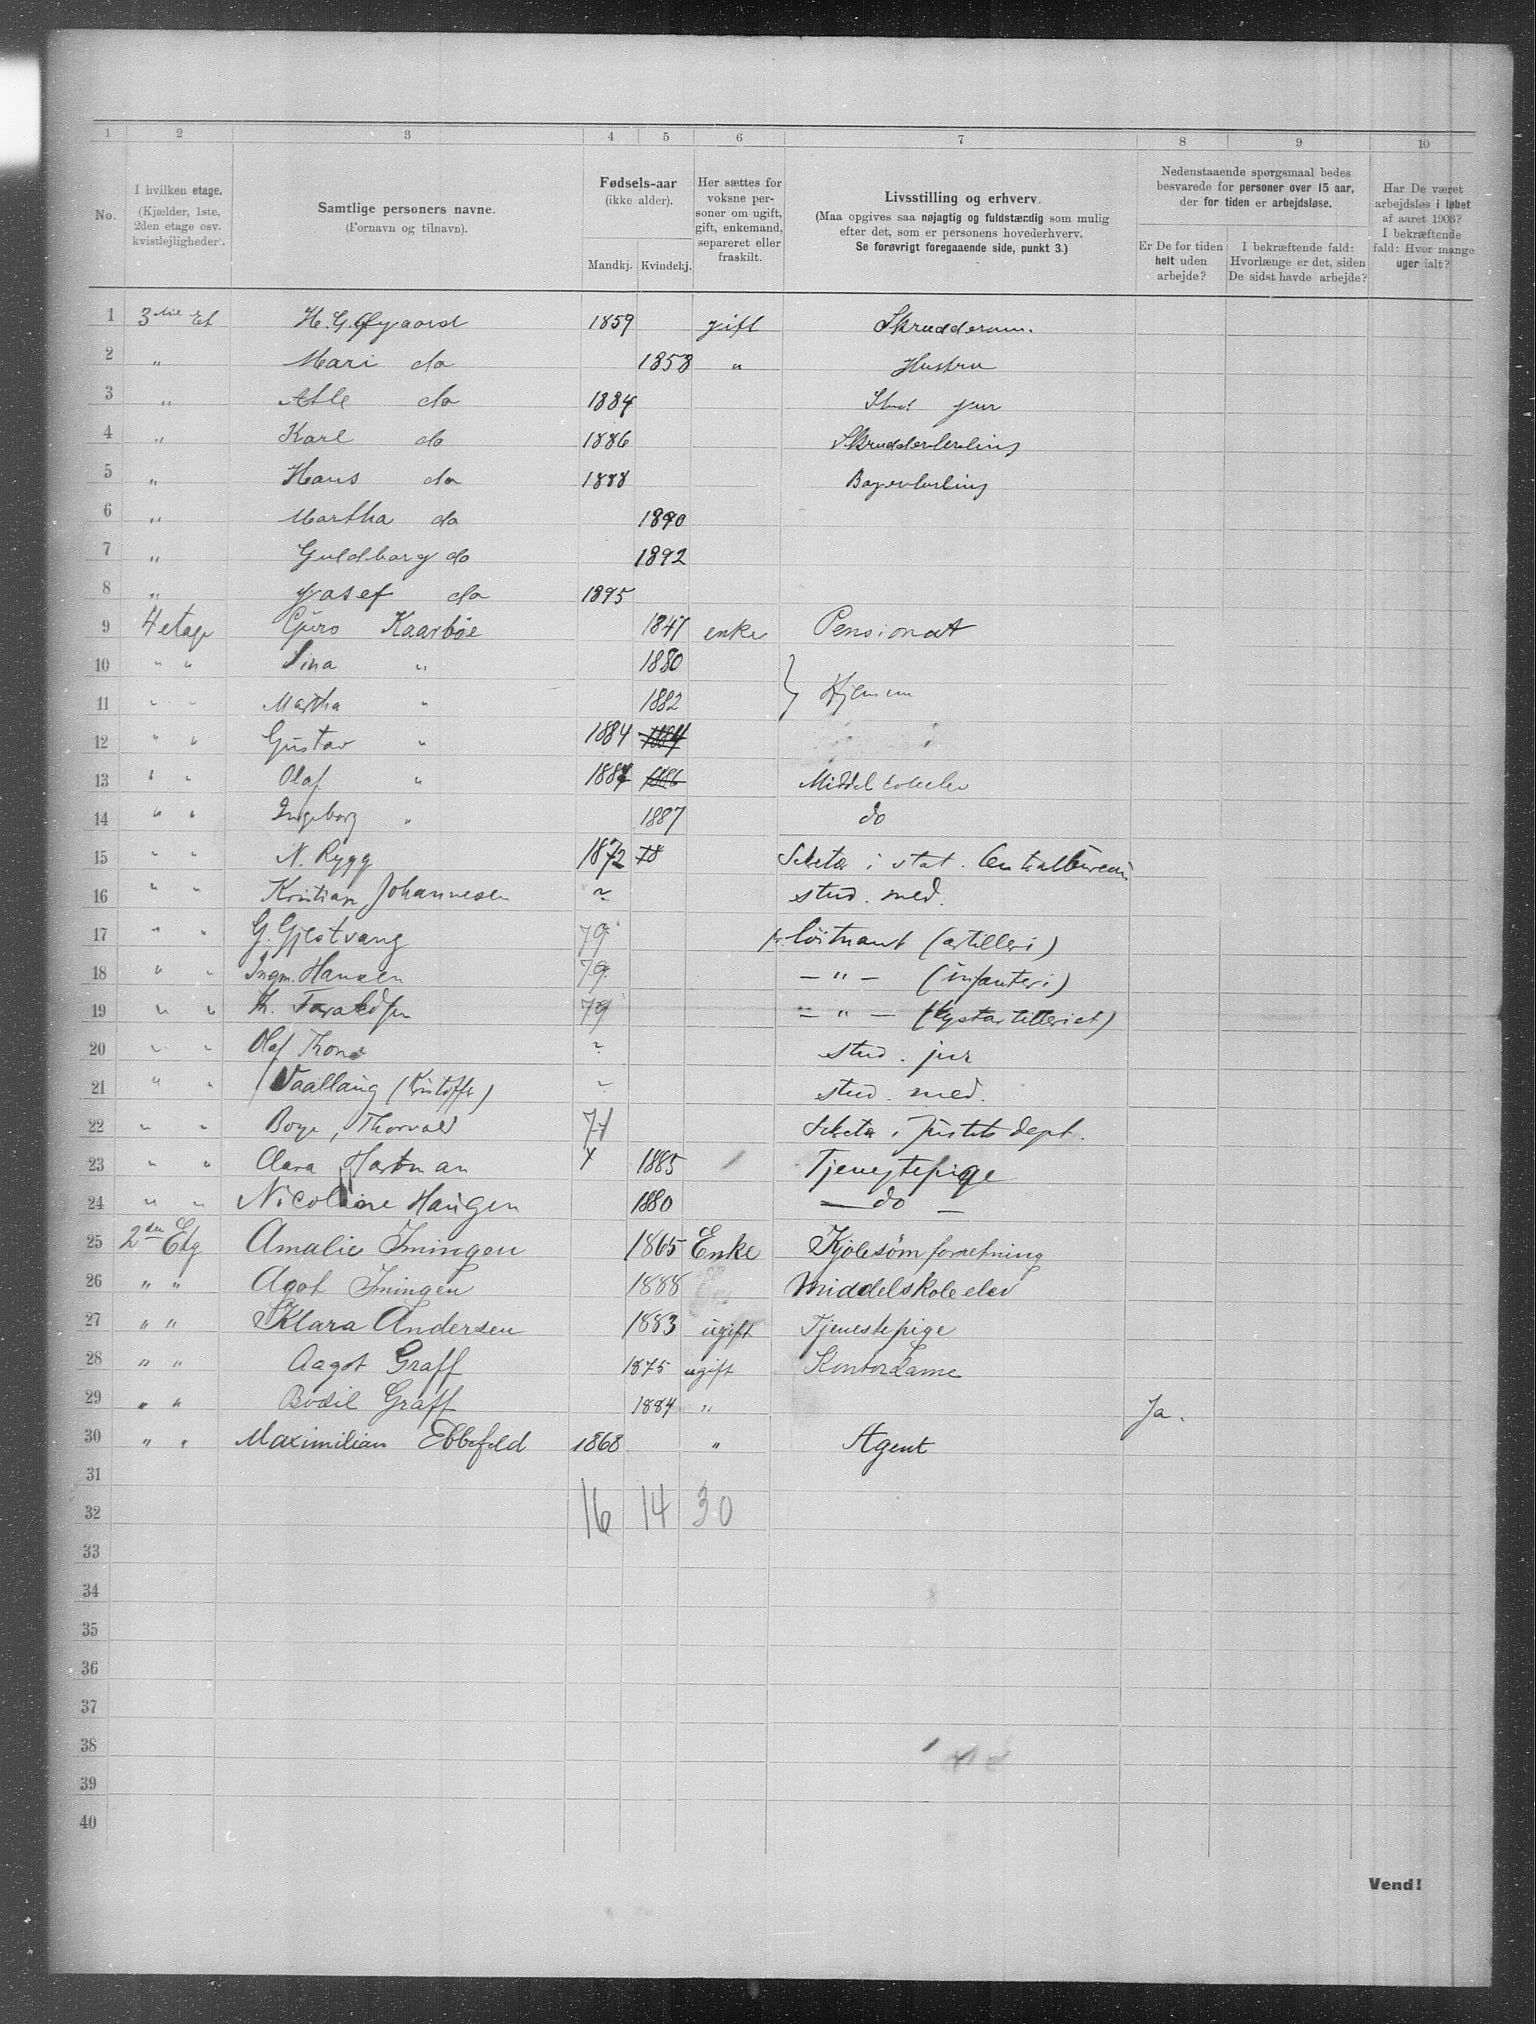 1 2 3 4 5 6 7 8 9 10
No.
I hvilken etage.
(Kjælder, 1ste,
2den etage osv.
kvistlejligheder.
Samtlige personers navne.
(Fornavn og tilnavn).
Fødsels-aar
(ikke alder).
Mandkj. Kvindekj.
Her sættes for
voksne per-
soner om ugift,
gift, enkemand,
separeret eller
fraskilt.
Livsstilling og erhverv.
(Maa opgives saa nøjagtig og fuldstændig som mulig
efter det, som er personens hovederhverv.
Se forøvrigt foregaaende side, punkt 3.)
Nedenstaaende spørgsmaal bedes
besvarede for personer over 15 aar,
der for tiden er arbejdsløse.
Er De for tiden
helt uden
arbejde?
I bekræftende fald:
Hvorlænge er det, siden
De sidst havde arbejde?
Har De været
arbejdsløs i løbet
af aaret 1903?
I bekræftende
fald: Hvor mange
uger ialt?
1 3die Et H. G. Øygaard 1859 gift Skrædderm.
2 " Mari do 1858 " Hustru
3 " Atle do 1884 Stud jur
4 " Karl do 1886 Skrædderlerling
5 " Hans do 1888 Bagerlerling
6 " Martha do 1890
7 " Guldborg do 1892
8 " Josef do 1895
9 4 etage Guro Kaarbøe 1847 enke Pensionat
10 " " Sina " 1880
11 " " Martha " 1882 } Hjemme
12 " " Gustav " 1884 1884
13 " " Olaf " 1887 1886 Middelskolelev
14 " " Ingeborg " 1887 do
15 " " N. Rygg 1872 78 Sekretær i stat. Centralbureau
16 " " Kristian Johannesen ~ stud. med.
17 " " G. Gjestvang 79 pr. löitnant (artilleri)
18 " " Ingm. Hansen 79 — " — (infanteri)
19 " " Th. Taraldsen 79 — " — (kystartilleriet)
20 " " Olaf Thone ~ stud. jur
21 " " Vaallang (Kristoffer) ~ stud. med.
22 " " Boye, Thorvald 71 Sekretær i Justits dept.
23 " " Clara Hartman 1885 Tjenestepige
24 " " Nicoline Haugen 1880 — do —
25 2den Etg Amalie Imingen 1865 Enke Kjolesømforretning
26 " " Agot Imingen 1888 Middelskoleelev
27 " " Klara Andersen 1883 ugift Tjenestepige
28 " " Aagot Graff 1875 ugift Kontordame
29 " " Bodil Graff 1884 " Ja.
30 " " Maximilian Ebbefeld 1868 " Agent
31
32 16 14 30
33
34
35
36
37
38
39
40
Vend!